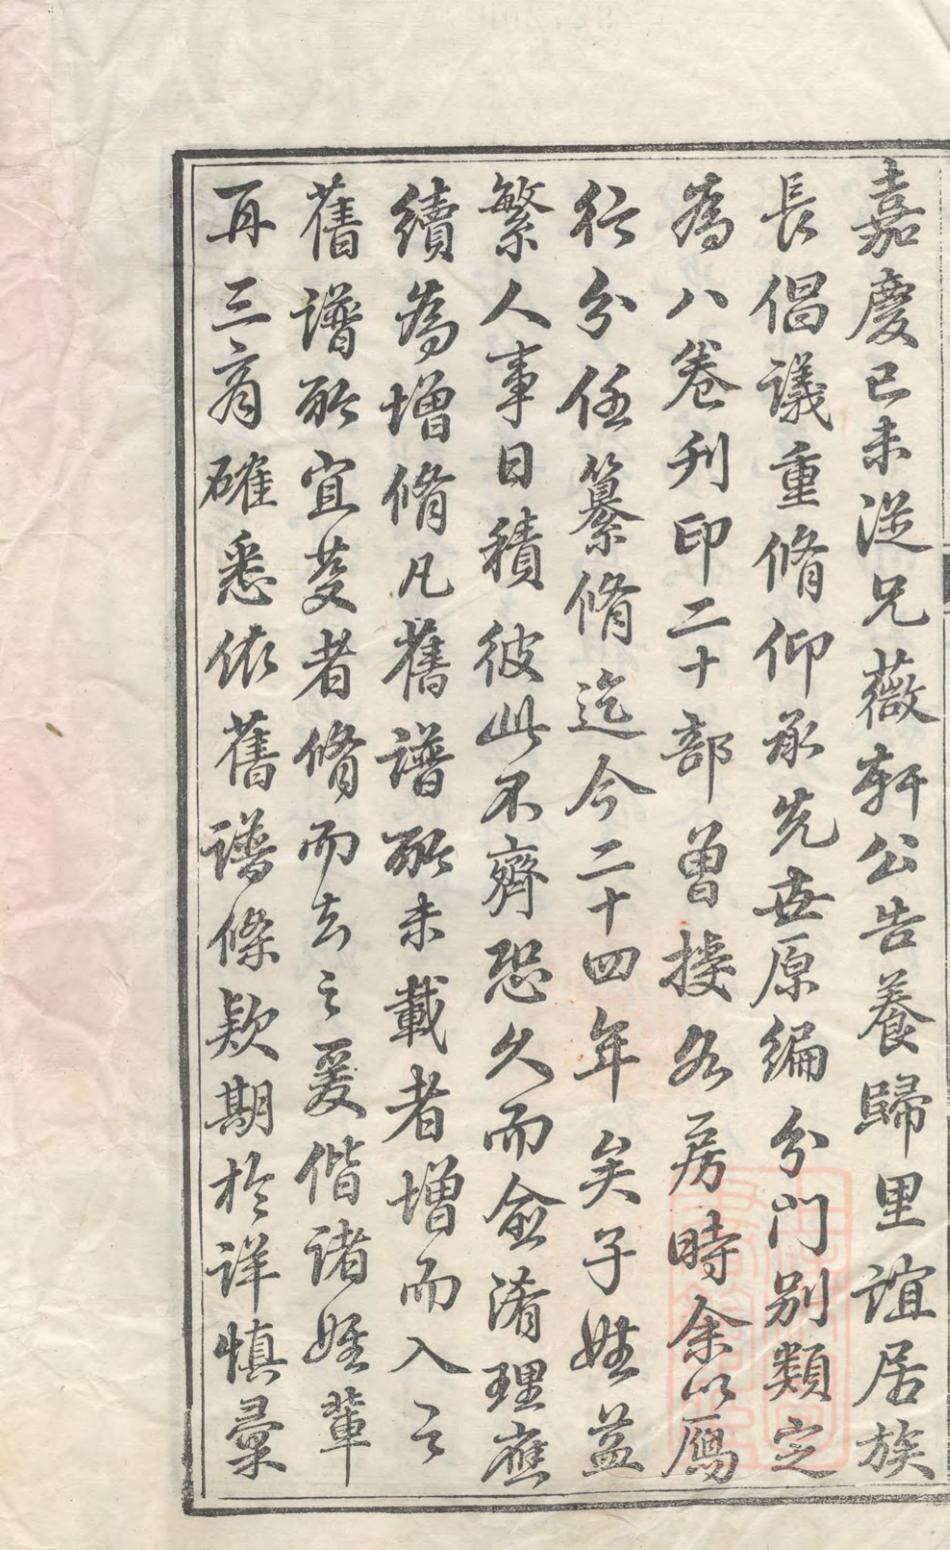 嘉慶已未從兄薇軒公告養歸里誼居族
長倡議重脩仰承先世原編分門別類定
為八卷刋印二十部曾授各房時余以鴈
行分任纂脩迄今二十四年矣子姓益
繁人事日積彼此不齊恐久而愈淆理應
續為增脩凡舊譜所未載者增而入之
舊譜所宜芟者脩而去之爰偕諸姪輩
再三商確悉依舊譜條欵期於詳慎彙